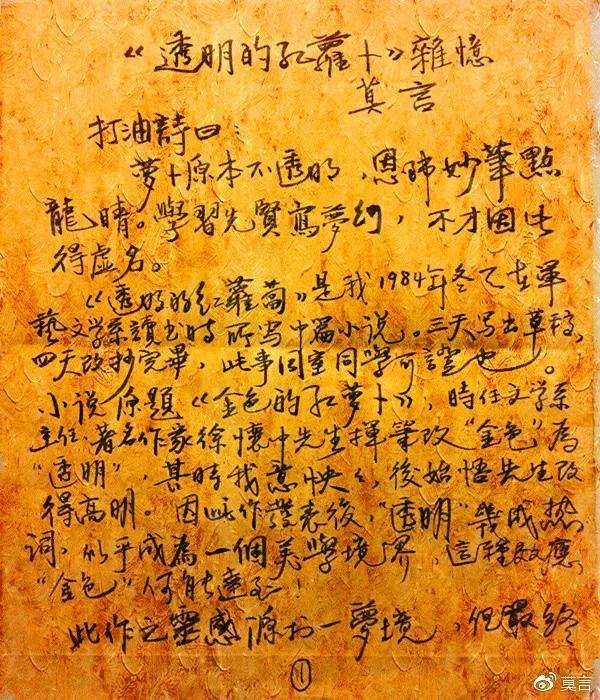 《透明的红蘿卜》雜憶
莫言
打油詩曰：
萝卜原本不透明，恩師妙筆點
龍睛。學習先賢寫夢幻，不才因此
得虚名。
《透明的红蘿蔔》是我1984年冬天在軍
藝文学系讀书时所写中篇小说。三天写出草稿，
四天改抄完畢，此事同室同學可證也。
小说原題《金色的红萝卜》，時任文学系
主任、著名作家徐懷中先生揮筆改"金色"為
"透明"，其時我意怏々，後始悟先生改
得高明。因此作發表後，"透明"幾成热
词，似乎成為一個美學境界，這種效應，
"金色"何能達到！
此作之靈感源於一夢境，但最終
①
莫言